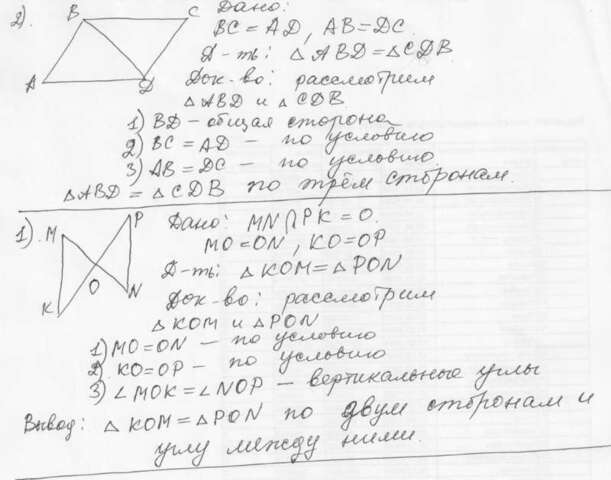 2).
B C
A D
Дано:
BC = AD, AB = DC.
Д-ть: △ABD = △CDB
Док-во: рассмотрим
△ABD и △CDB
1) BD – общая сторона
2) BC = AD – по условию
3) AB = DC – по условию.
△ABD = △CDB по трём сторонам.
1).
P
M
O
N
K
Дано: MN ∩ PK = O.
MO = ON, KO = OP
Д-ть: △KOM = △PON
Док-во: рассмотрим
△KOM и △PON
1) MO = ON – по условию
2). KO = OP – по условию
3) ∠MOK = ∠NOP – вертикальные углы
Вывод: △KOM = △PON по двум сторонам и
углу между ними.